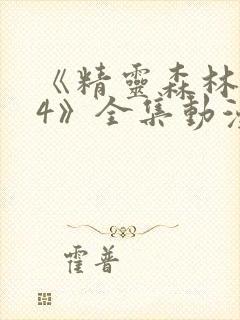 《精靈森林
4》全集動漫
霍普